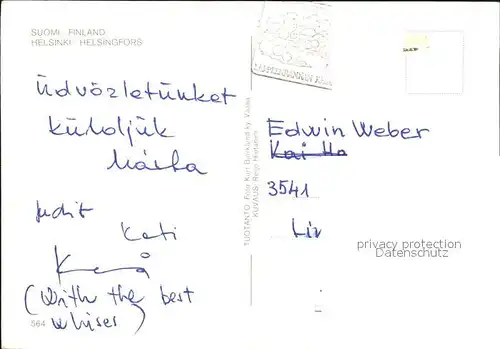 SUOMI FINLAND
HELSINKI HELSINGFORS
Üdvözletünket
küldjük
Márta
Judit
Kati
(With the best
whises)
564
TUOTANTO: Foto Kurt Bucklund ky. Vaasa
KUVAUS: Reijo Hietanen
Edwin Weber
Kai Ho
3541
Liv
privacy protection
Datenschutz